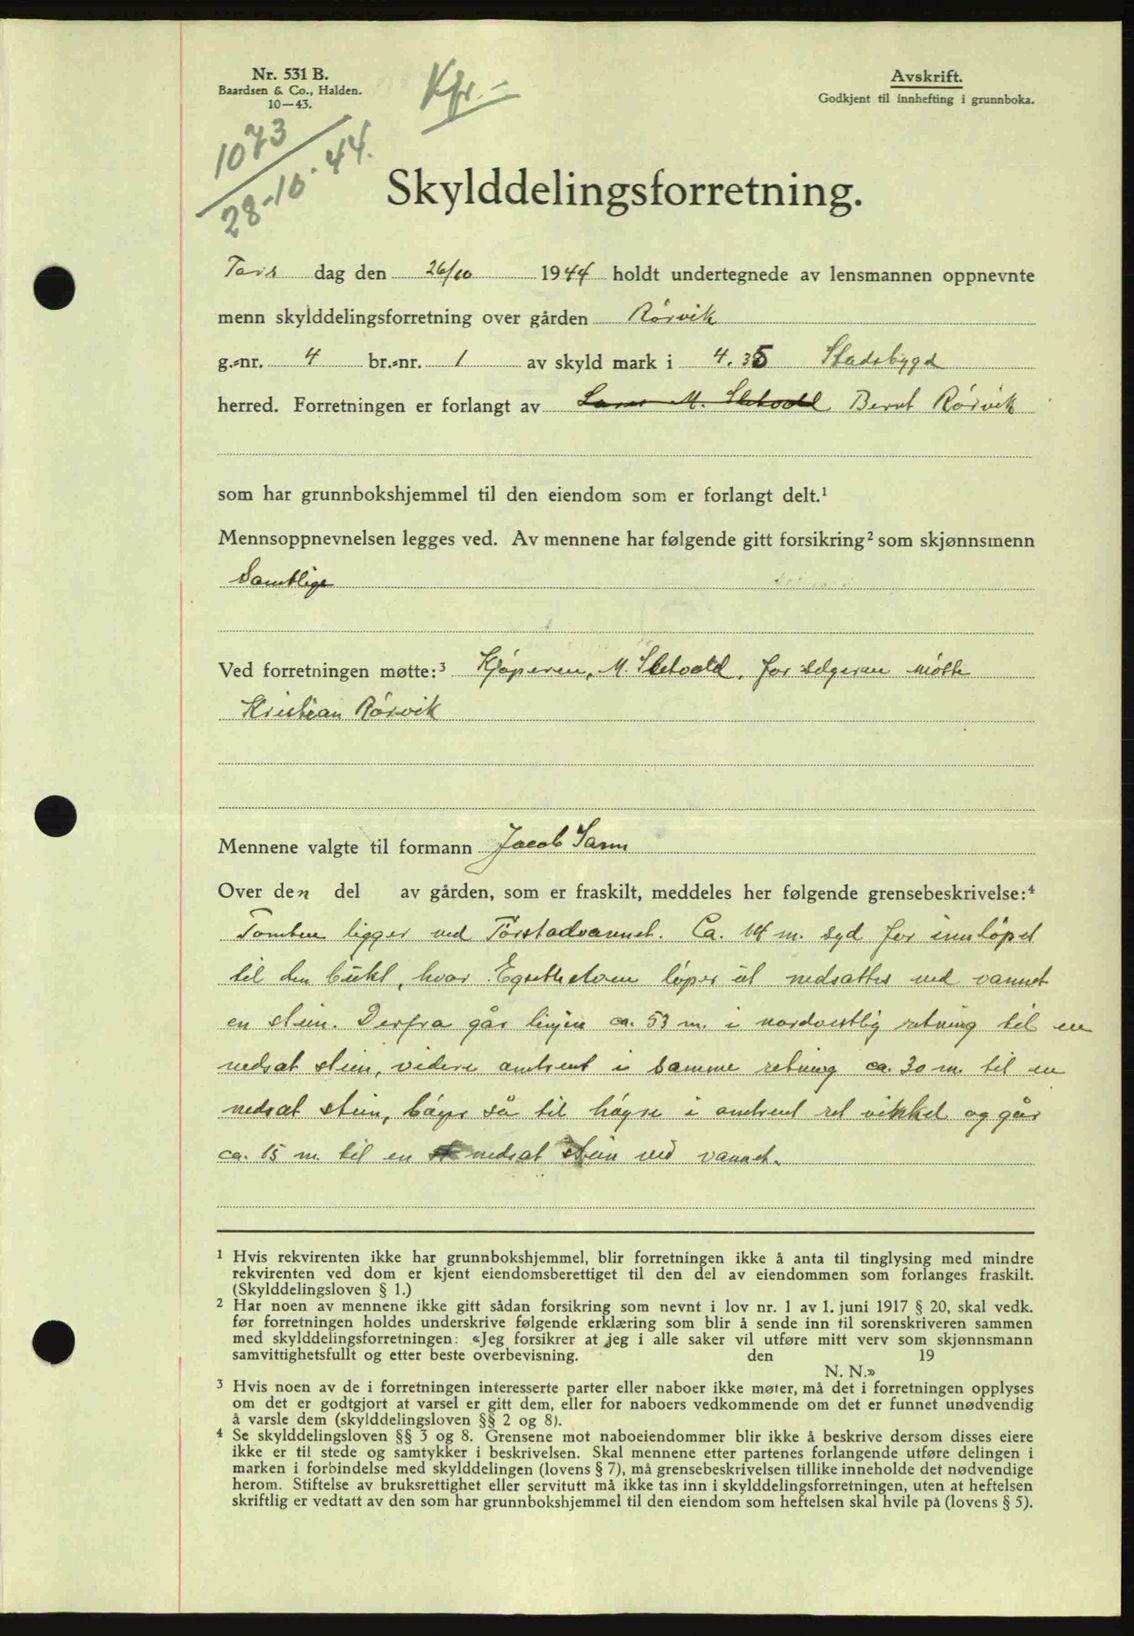 Nr. 531 B.
Baardsen & Co., Halden.
10—43.
Kfr.-
Avskrift.
Godkjent til innhefting i grunnboka.
1073
28-10-44.
Skylddelingsforretning.
Tors dag den 26/10 1944 holdt undertegnede av lensmannen oppnevnte
menn skylddelingsforretning over gården Rørvik
g.-nr. 4 br.-nr. 1 av skyld mark i 4.35 Stadsbygd
herred. Forretningen er forlangt av M. Sletvold Bernt Rørvik
som har grunnbokshjemmel til den eiendom som er forlangt delt.¹
Mennsoppnevnelsen legges ved. Av mennene har følgende gitt forsikring² som skjønnsmenn
Samtlige
Ved forretningen møtte:³ Kjøperen, M. Sletvold, for selgeren møtte
Kristian Rørvik
Mennene valgte til formann Jacob
Over den del av gården, som er fraskilt, meddeles her følgende grensebeskrivelse:⁴
Tomten ligger ved Tørstadvannet. Ca. 14 m. syd for innløpet
til den bukt, hvor løper ut nedsattes ved vannet
en stein. Derfra går linjen ca. 53 m. i nordvestlig retning til en
nedsat stein, videre omtrent i samme retning ca. 30 m. til en
nedsat stein, bøyer så til høyre i omtrent ret vinkel og går
ca. 15 m. til en nedsat stein ved vannet.
¹ Hvis rekvirenten ikke har grunnbokshjemmel, blir forretningen ikke å anta til tinglysing med mindre
rekvirenten ved dom er kjent eiendomsberettiget til den del av eiendommen som forlanges fraskilt.
(Skylddelingsloven § 1.)
² Har noen av mennene ikke gitt sådan forsikring som nevnt i lov nr. 1 av 1. juni 1917 § 20, skal vedk.
før forretningen holdes underskrive følgende erklæring som blir å sende inn til sorenskriveren sammen
med skylddelingsforretningen: «Jeg forsikrer at jeg i alle saker vil utføre mitt verv som skjønnsmann
samvittighetsfullt og etter beste overbevisning. den 19
N. N.»
³ Hvis noen av de i forretningen interesserte parter eller naboer ikke møter, må det i forretningen opplyses
om det er godtgjort at varsel er gitt dem, eller for naboers vedkommende om det er funnet unødvendig
å varsle dem (skylddelingsloven §§ 2 og 8).
⁴ Se skylddelingsloven §§ 3 og 8. Grensene mot naboeiendommer blir ikke å beskrive dersom disses eiere
ikke er til stede og samtykker i beskrivelsen. Skal mennene etter partenes forlangende utføre delingen i
marken i forbindelse med skylddelingen (lovens § 7), må grensebeskrivelsen tillike inneholde det nødvendige
herom. Stiftelse av bruksrettighet eller servitutt må ikke tas inn i skylddelingsforretningen, uten at heftelsen
skriftlig er vedtatt av den som har grunnbokshjemmel til den eiendom som heftelsen skal hvile på (lovens § 5).